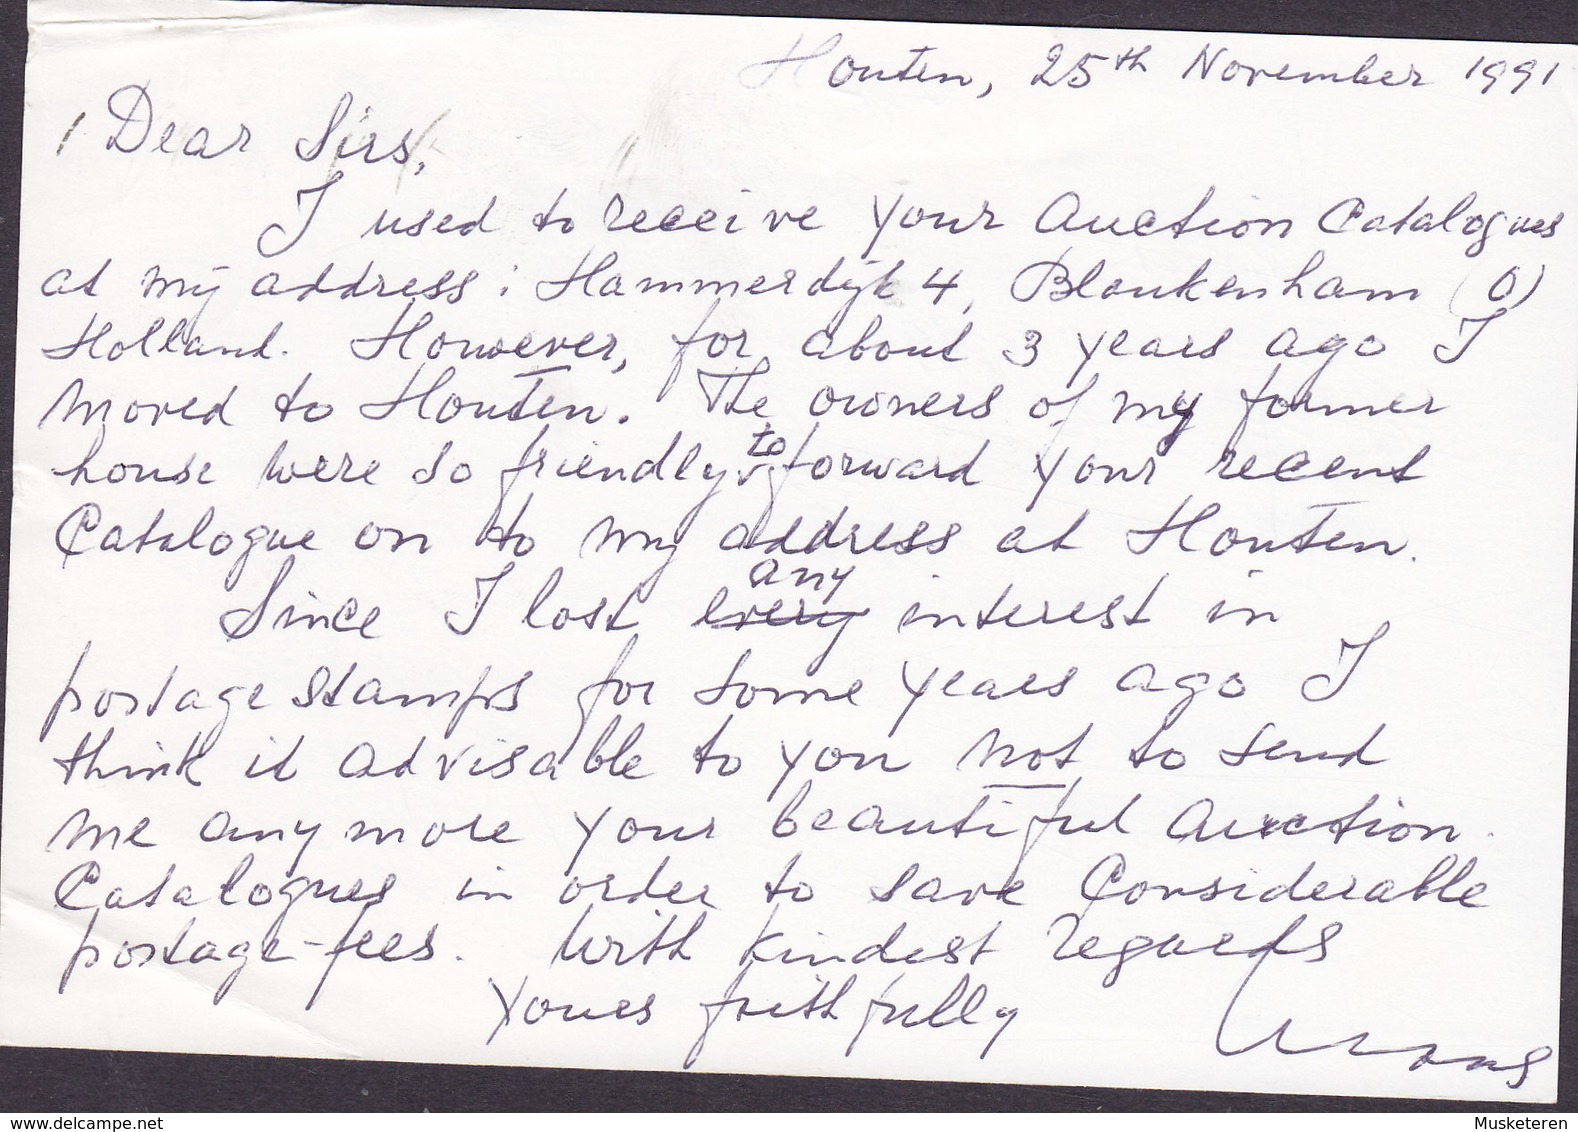 Houten, 25th November 1991
Dear Sirs,
I used to receive your Auction Catalogues
at my address: Hammerdyk 4, Blankenham (O)
Holland. However, for about 3 years ago I
moved to Houten. The owners of my former
house were so friendly to forward your recent
Catalogue on to my address at Houten.
Since I lost every any interest in
postage stamps for some years ago I
think it advisable to you not to send
me any more your beautiful Auction
Catalogues in order to save Considerable
postage-fees. With kindest regards
Yours faithfully
www.delcampe.net
Musketeren